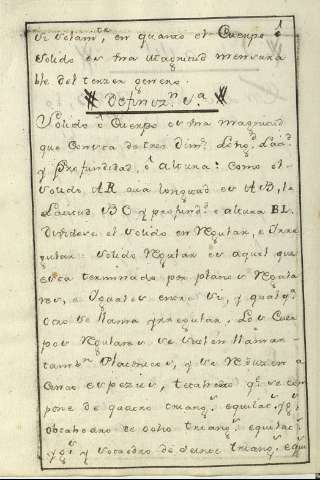 en quanto el Cuerpo ó
solido es una magnitud mensura
ble del tercer genero.
Definiz.n 1.a
Solido ó Cuerpo es una magnitud
que consta de tres dim.s Long.d Lati.d
y Profundidad, ó altura: como el
solido, AR sua longitud es AB, la
Latitud BC y profund.d o altura BL.
Dividese el solido en Regular, e Irre
gular: solido Regular es aquel que
esta terminado por planos Regula
res, e Iguales entre si, y qualq.a
otro se llama yrregular. Los Cuer
pos Regulares se suelen llamar
tamb.n Platonicos, y se Reduzen a
cinco espezies, tetrahedro q.e se com
pone de quatro triang.s equilat.s yg.s
obctahedro de ocho triang.s equilat.s
yg.s y ycocaedro de veinte triang.s equi